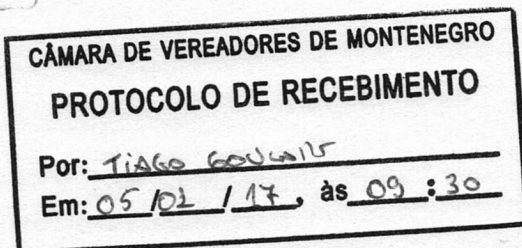 CÂMARA DE VEREADORES DE MONTENEGRO
PROTOCOLO DE RECEBIMENTO
Por: TIAGO
Em: 05 / 02 / 17, às 09 : 30